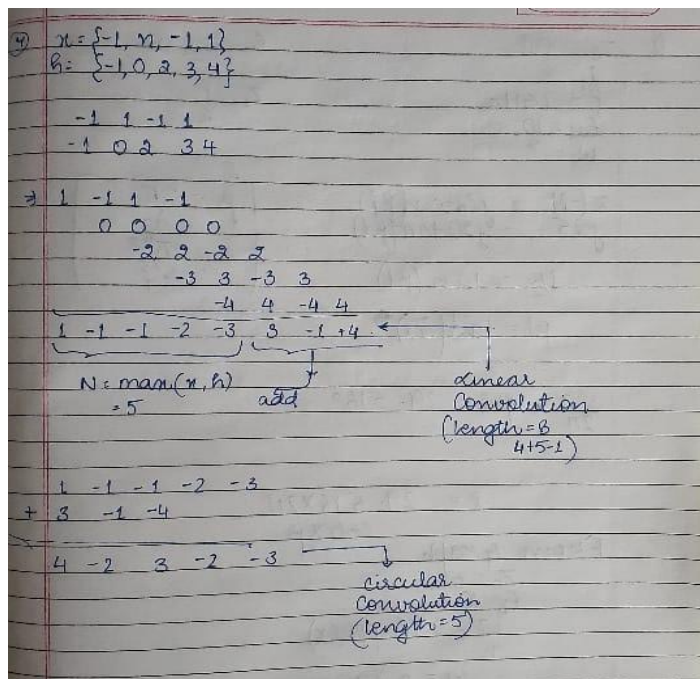 4) x = {-1, n, -1, 1}
h = {-1, 0, 2, 3, 4}
-1 1 -1 1
-1 0 2 3 4
⇒ 1 -1 1 -1
0 0 0 0
-2 2 -2 2
-3 3 -3 3
-4 4 -4 4
1 -1 -1 -2 -3 3 -1 +4
N = max(x, h)
= 5
add
Linear
Convolution
(length = 8
4+5-1)
1 -1 -1 -2 -3
+ 3 -1 -4
4 -2 3 -2 -3
circular
Convolution
(length = 5)